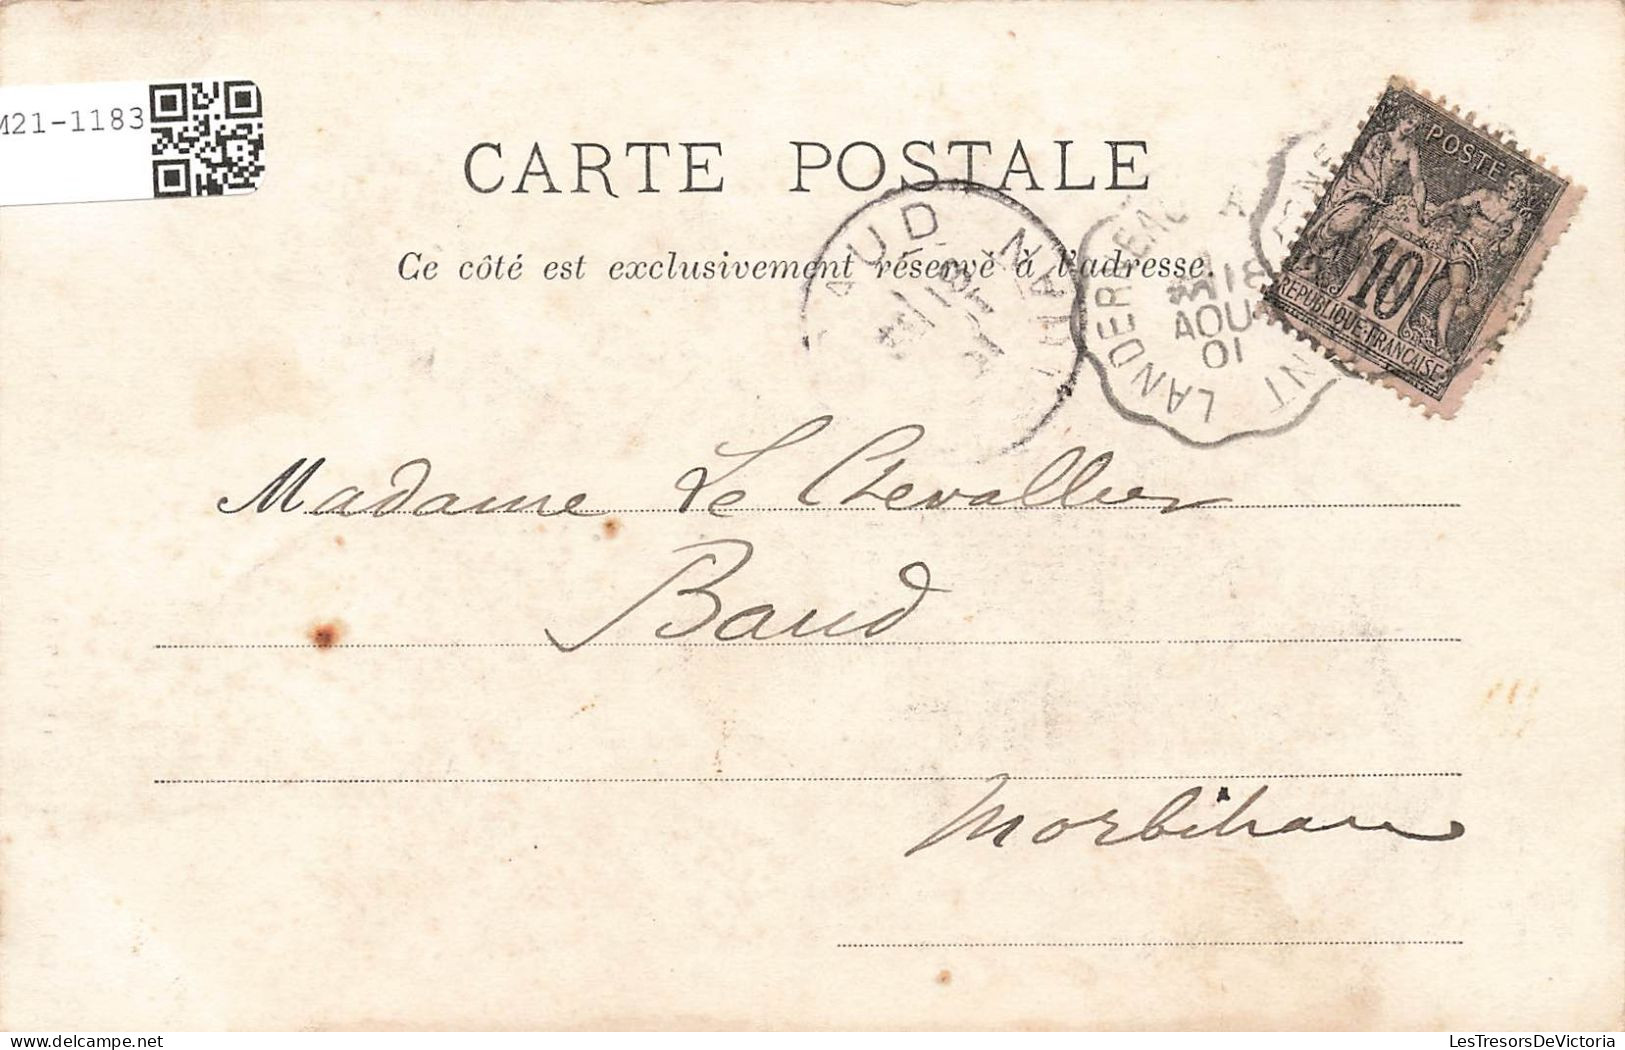 M21-1183
CARTE POSTALE
Ce côté est exclusivement réservé à l'adresse.
POSTE
10
REPUBLIQUE FRANCAISE
BAUD
18
AOUT
01
LANDERNEAU
Madame Le Chevallier
Baud
Morbihan
LesTresorsDeVictoria